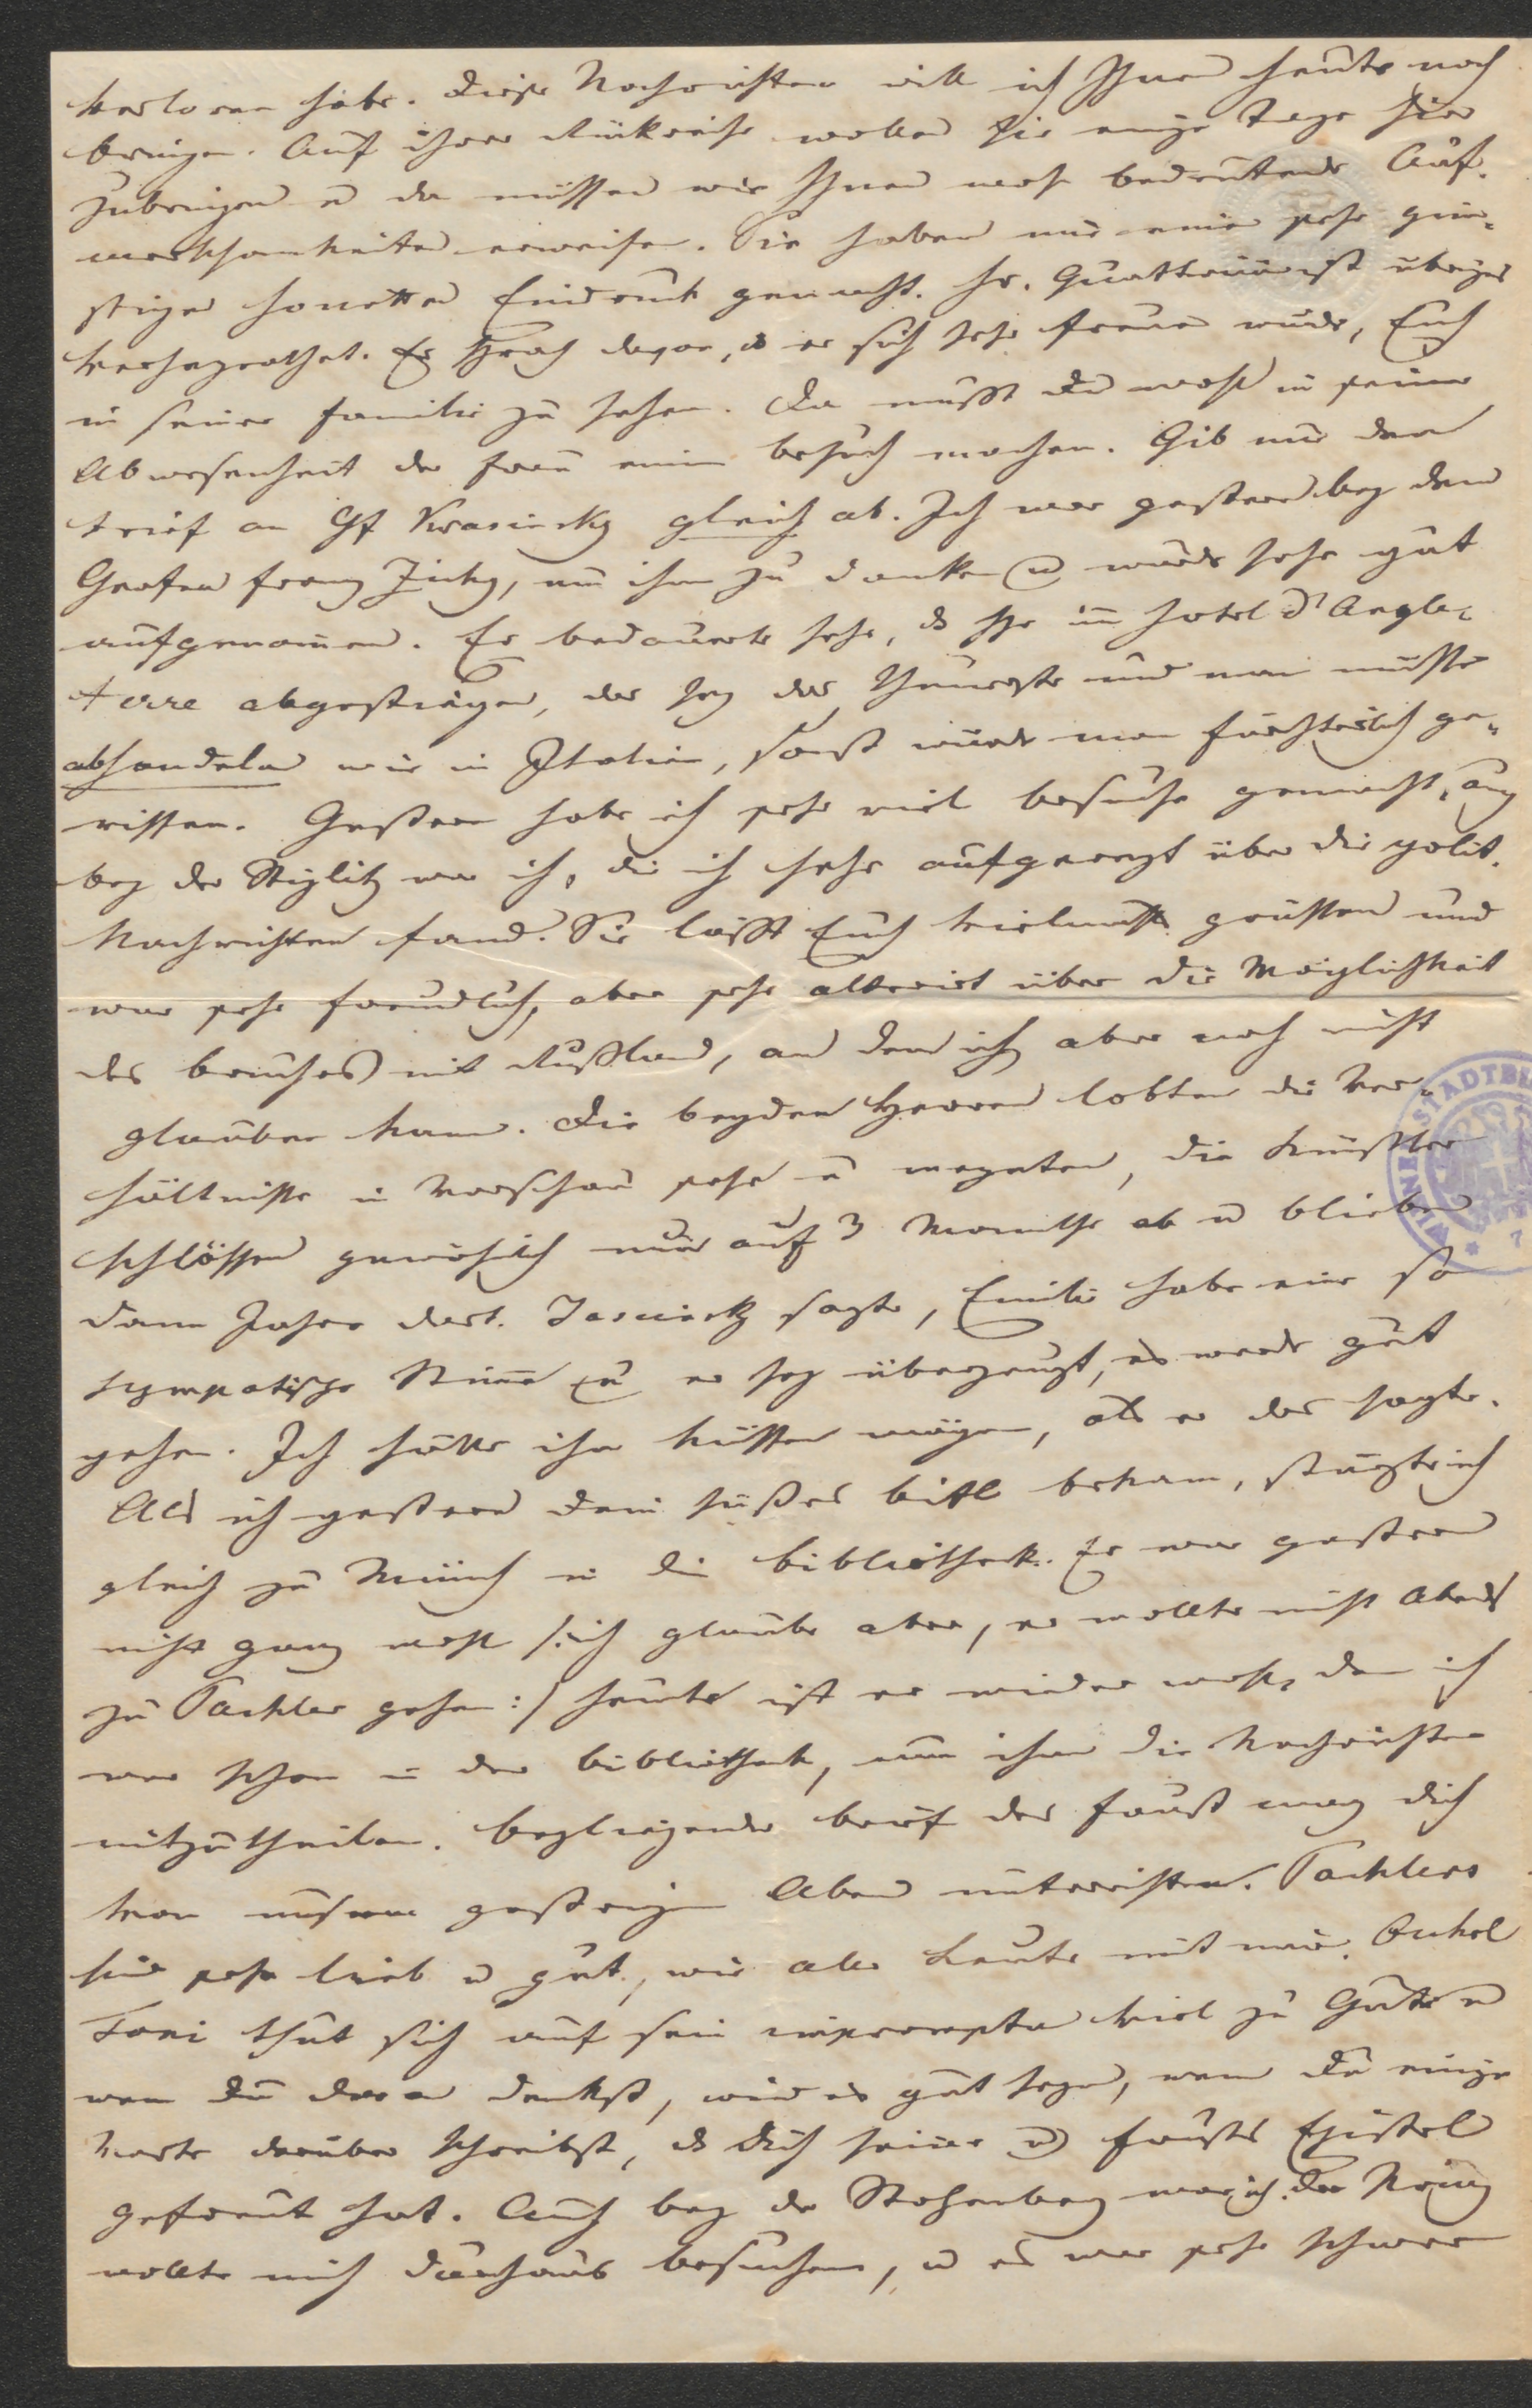 verloren habe. Diese Nachrichten will ich Ihnen heute noch
bringen. Auf ihrer Rückreise wollen sie einige Tage hier
zubringen u da müssen wir Ihnen wohl bedeutende Auf-
merksamkeiten erweisen. Sie haben mir einen sehr gün-
stigen honetten Eindruck gemacht. Hr. Quattrini ist übrigens
verheyrathet. Er sprach davon, dß er sich sehr freuen würde, Euch
in seiner Familie zu sehen. Da mußt du wohl in seiner
Abwesenheit der Frau einen Besuch machen. Gib nur den
Brief an Gf Krasinsky gleich ab. Ich war gestern bey dem
Grafen Franz Zichy, um ihm zu danken u wurde sehr gut
aufgenommen. Er bedauerte sehr, dß Ihr im Hotel d'Angle-
terre abgestiegen, das sey das theuerste und man müsse
abhandeln wie in Italien, sonst würde man fürchterlich ge-
rissen. Gestern habe ich sehr viel Besuche gemacht, auch
bey der Stiglitz war ich, die ich sehr aufgeregt über die polit.
Nachrichten fand. Sie läßt Euch vielmals grüssen und
war sehr freundlich, aber sehr alterirt über die Möglichkeit
des Bruches mit Rußland, an den ich aber noch nicht
glauben kann. Die beyden Herren lobten die Ver-
hältnisse in Warschau sehr u meynten, die Künstler
schlössen gewöhnlich nur auf 3 Monathe ab u blieben
dann Jahre dort. Jasinsky sagte, Emilie habe eine so
sympatische Stimme u er sey überzeugt, es werde gut
gehen. Ich hätte ihn küssen mögen, als er das sagte.
Als ich gestern dein süßes bekam, stürzte ich
gleich zu Münch in die Bibliothek. Er war gestern
nicht ganz wohl /: ich glaube aber, er wollte nicht Abends
zu Pachler gehen :/ heute ist er wieder wohl, denn ich
war schon in der Bibliothek, um ihm die Nachrichten
mitzutheilen. Beyliegender Brief des Faust mag dich
von unserm gestrigen Abend unterrichten. Pachlers
sind sehr lieb u gut, wie alle Leute mit mir. Onkel
Toni thut sich auf sein impromptu viel zu Gute u
wenn du daran denkst, wird es gut seyn, wenn du einige
Worte darüber schreibst, dß dich seine u Fausts Epistel
gefreut hat. Auch bey der war ich. Der König
wollte mich durchaus besuchen, u es war sehr schwer